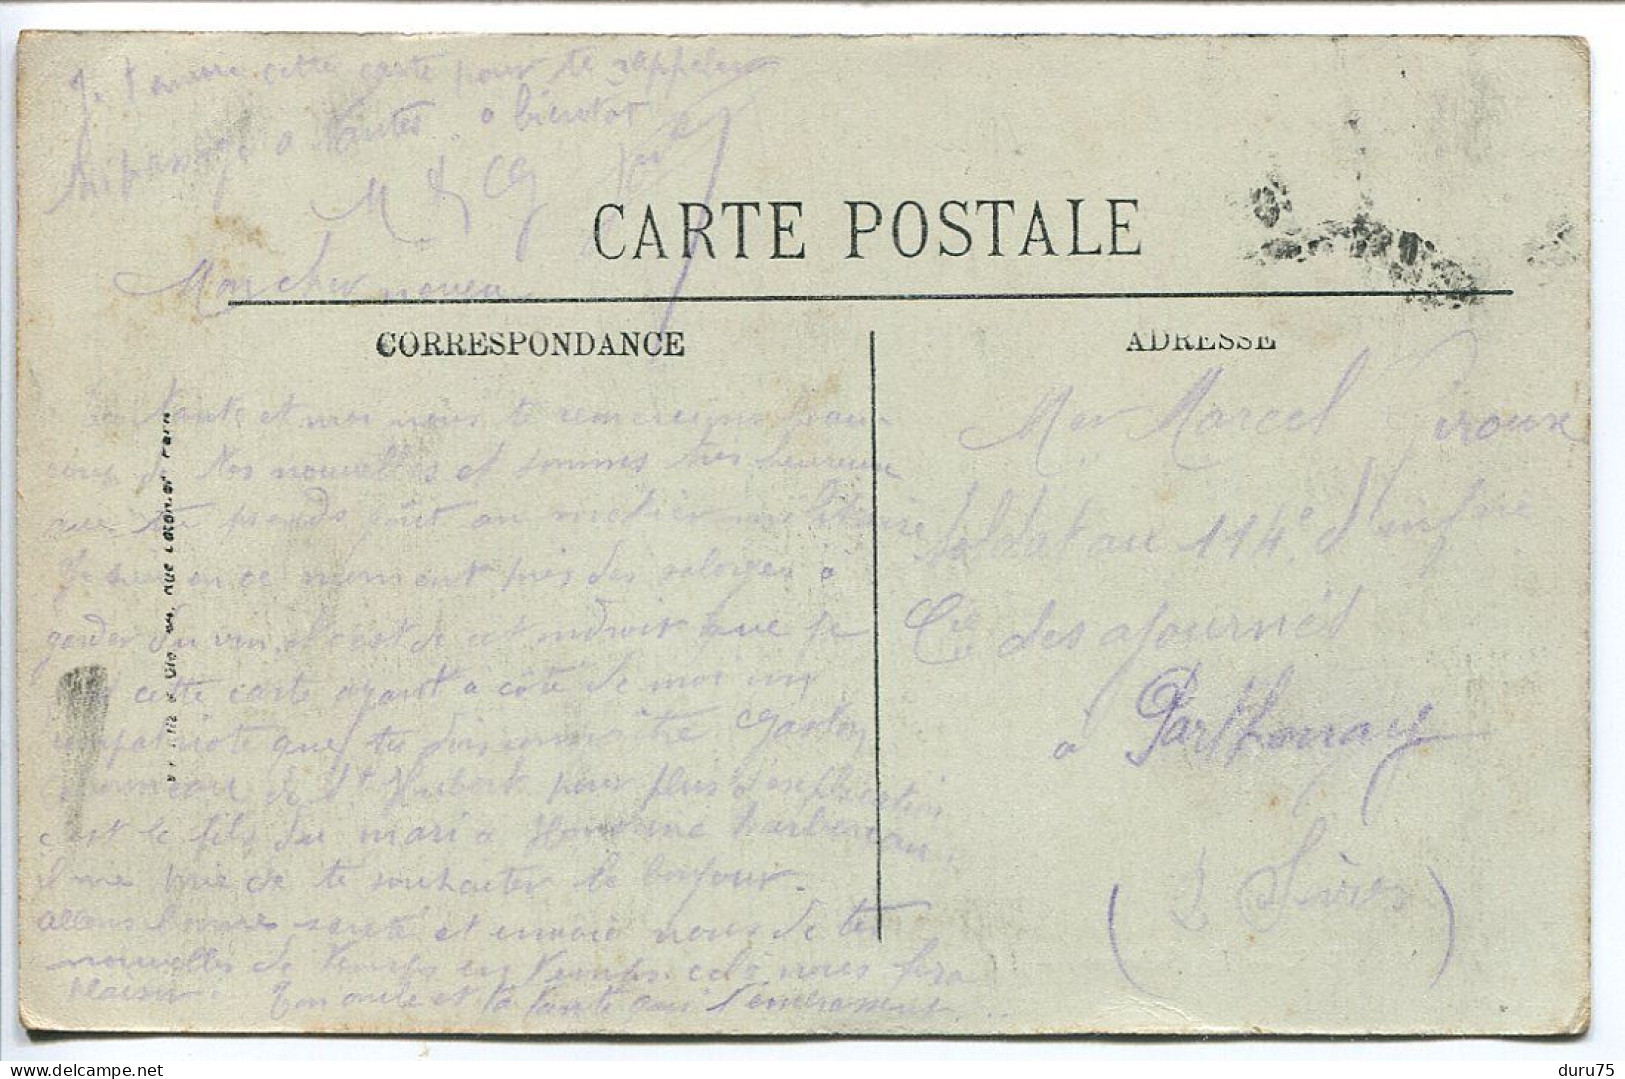 Je t'envoie cette carte pour te rappeler
passage a Nantes. a bientot
M
CARTE POSTALE
Mon cher neveu
CORRESPONDANCE
ADRESSE
Ta tante et moi nous te remercions beau
coup de tes nouvelles et sommes très heureux
que tu prends goût au metier militaire
Je suis en ce moment près des
garder du vin et c'est de cet endroit que je
cette carte ayant a côté de moi un
compatriote que tu dois connaitre Gaston
de St Hubert pour plus d'explication
c'est le fils du mari a
il me prie de te souhaiter le bonjour.
allons bonne santé et envoie nous de tes
nouvelles de temps en temps cela nous fera
plaisir. Ton oncle et ta tante qui t'embrassent...
Rue
Mr Marcel Giroux
Soldat au 114e d'Infrie
Cie des ajournés
a Parthenay
(2 Sèvres)
duru75